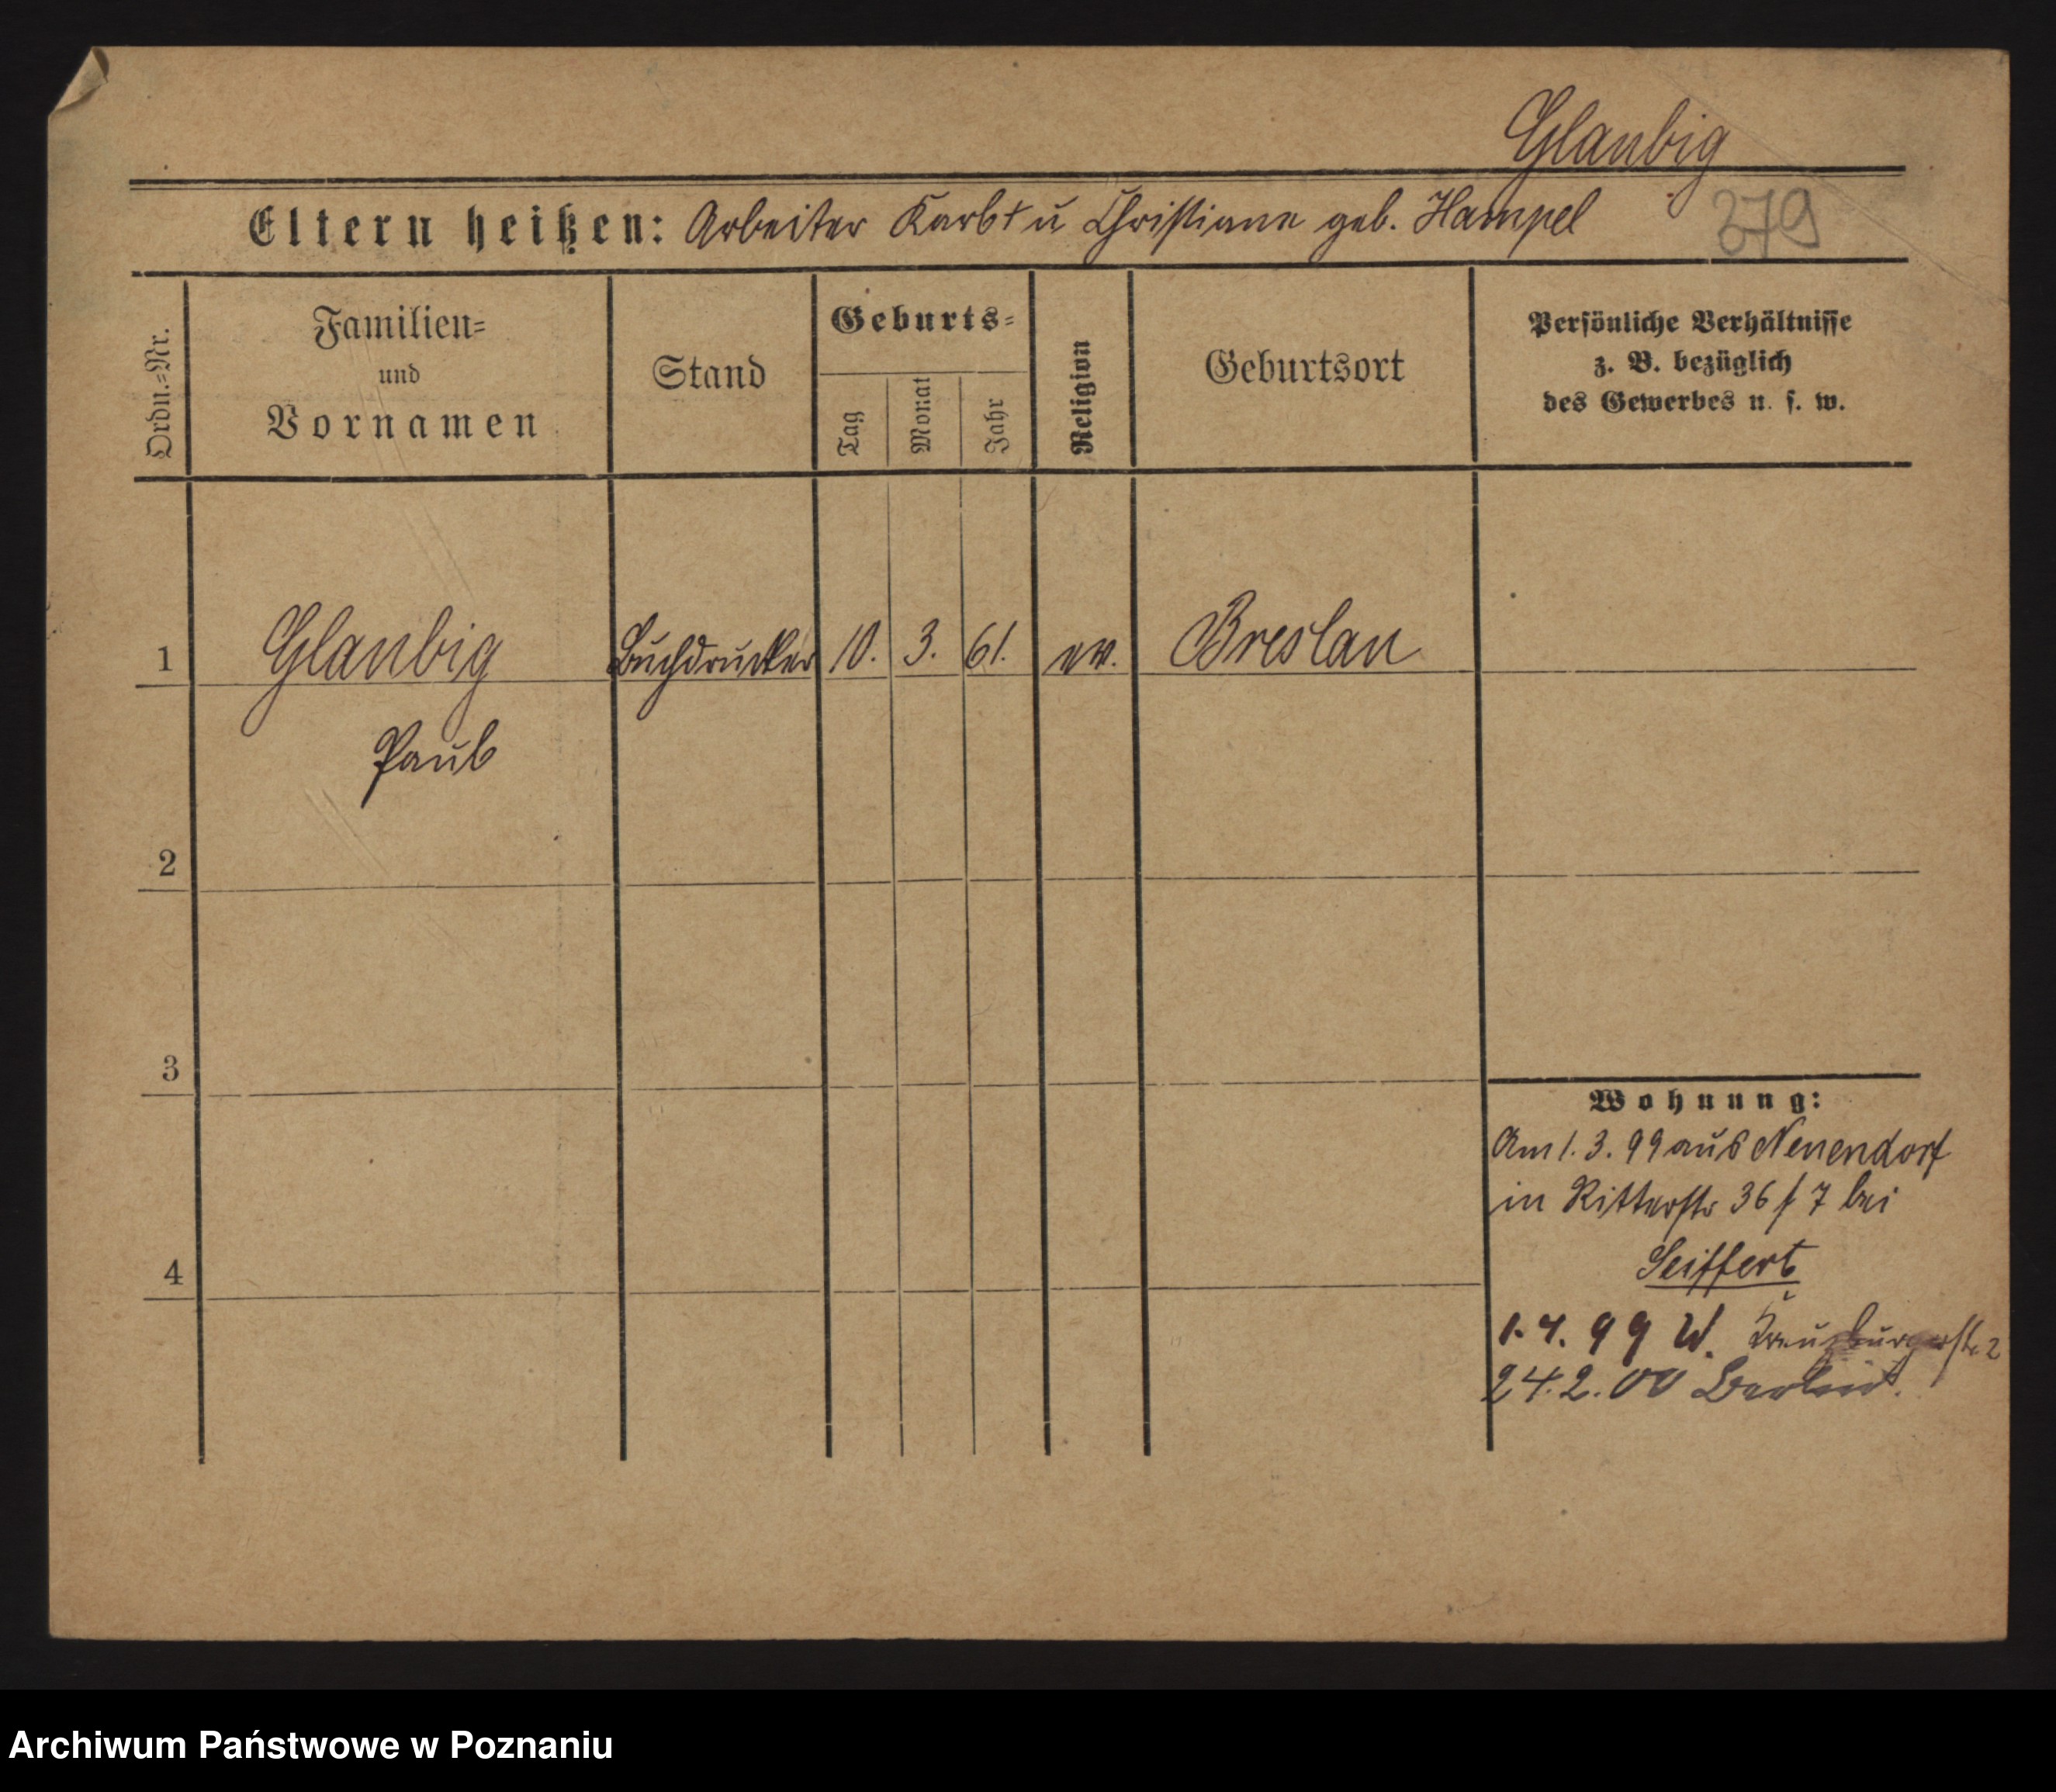 Glaubig
Eltern heißen: Arbeiter Karl † u Christiane geb. Hampel
379
Ordn.-Nr.
Familien-
und
Vornamen
Stand
Geburts-
Tag
Monat
Jahr
Religion
Geburtsort
Persönliche Verhältnisse
z. B. bezüglich
des Gewerbes u. s. w.
1 Glaubig Buchdrucker 10. 3. 61. ev. Breslau
Paul
2
3
4
Wohnung:
Am 1. 3. 99 aus Neuendorf
in Ritterstr 36 f 7 bei
Seiffert
1.4.99 W. Kreuzburgerstr. 2
24.2.00 Berlin.
Archiwum Państwowe w Poznaniu